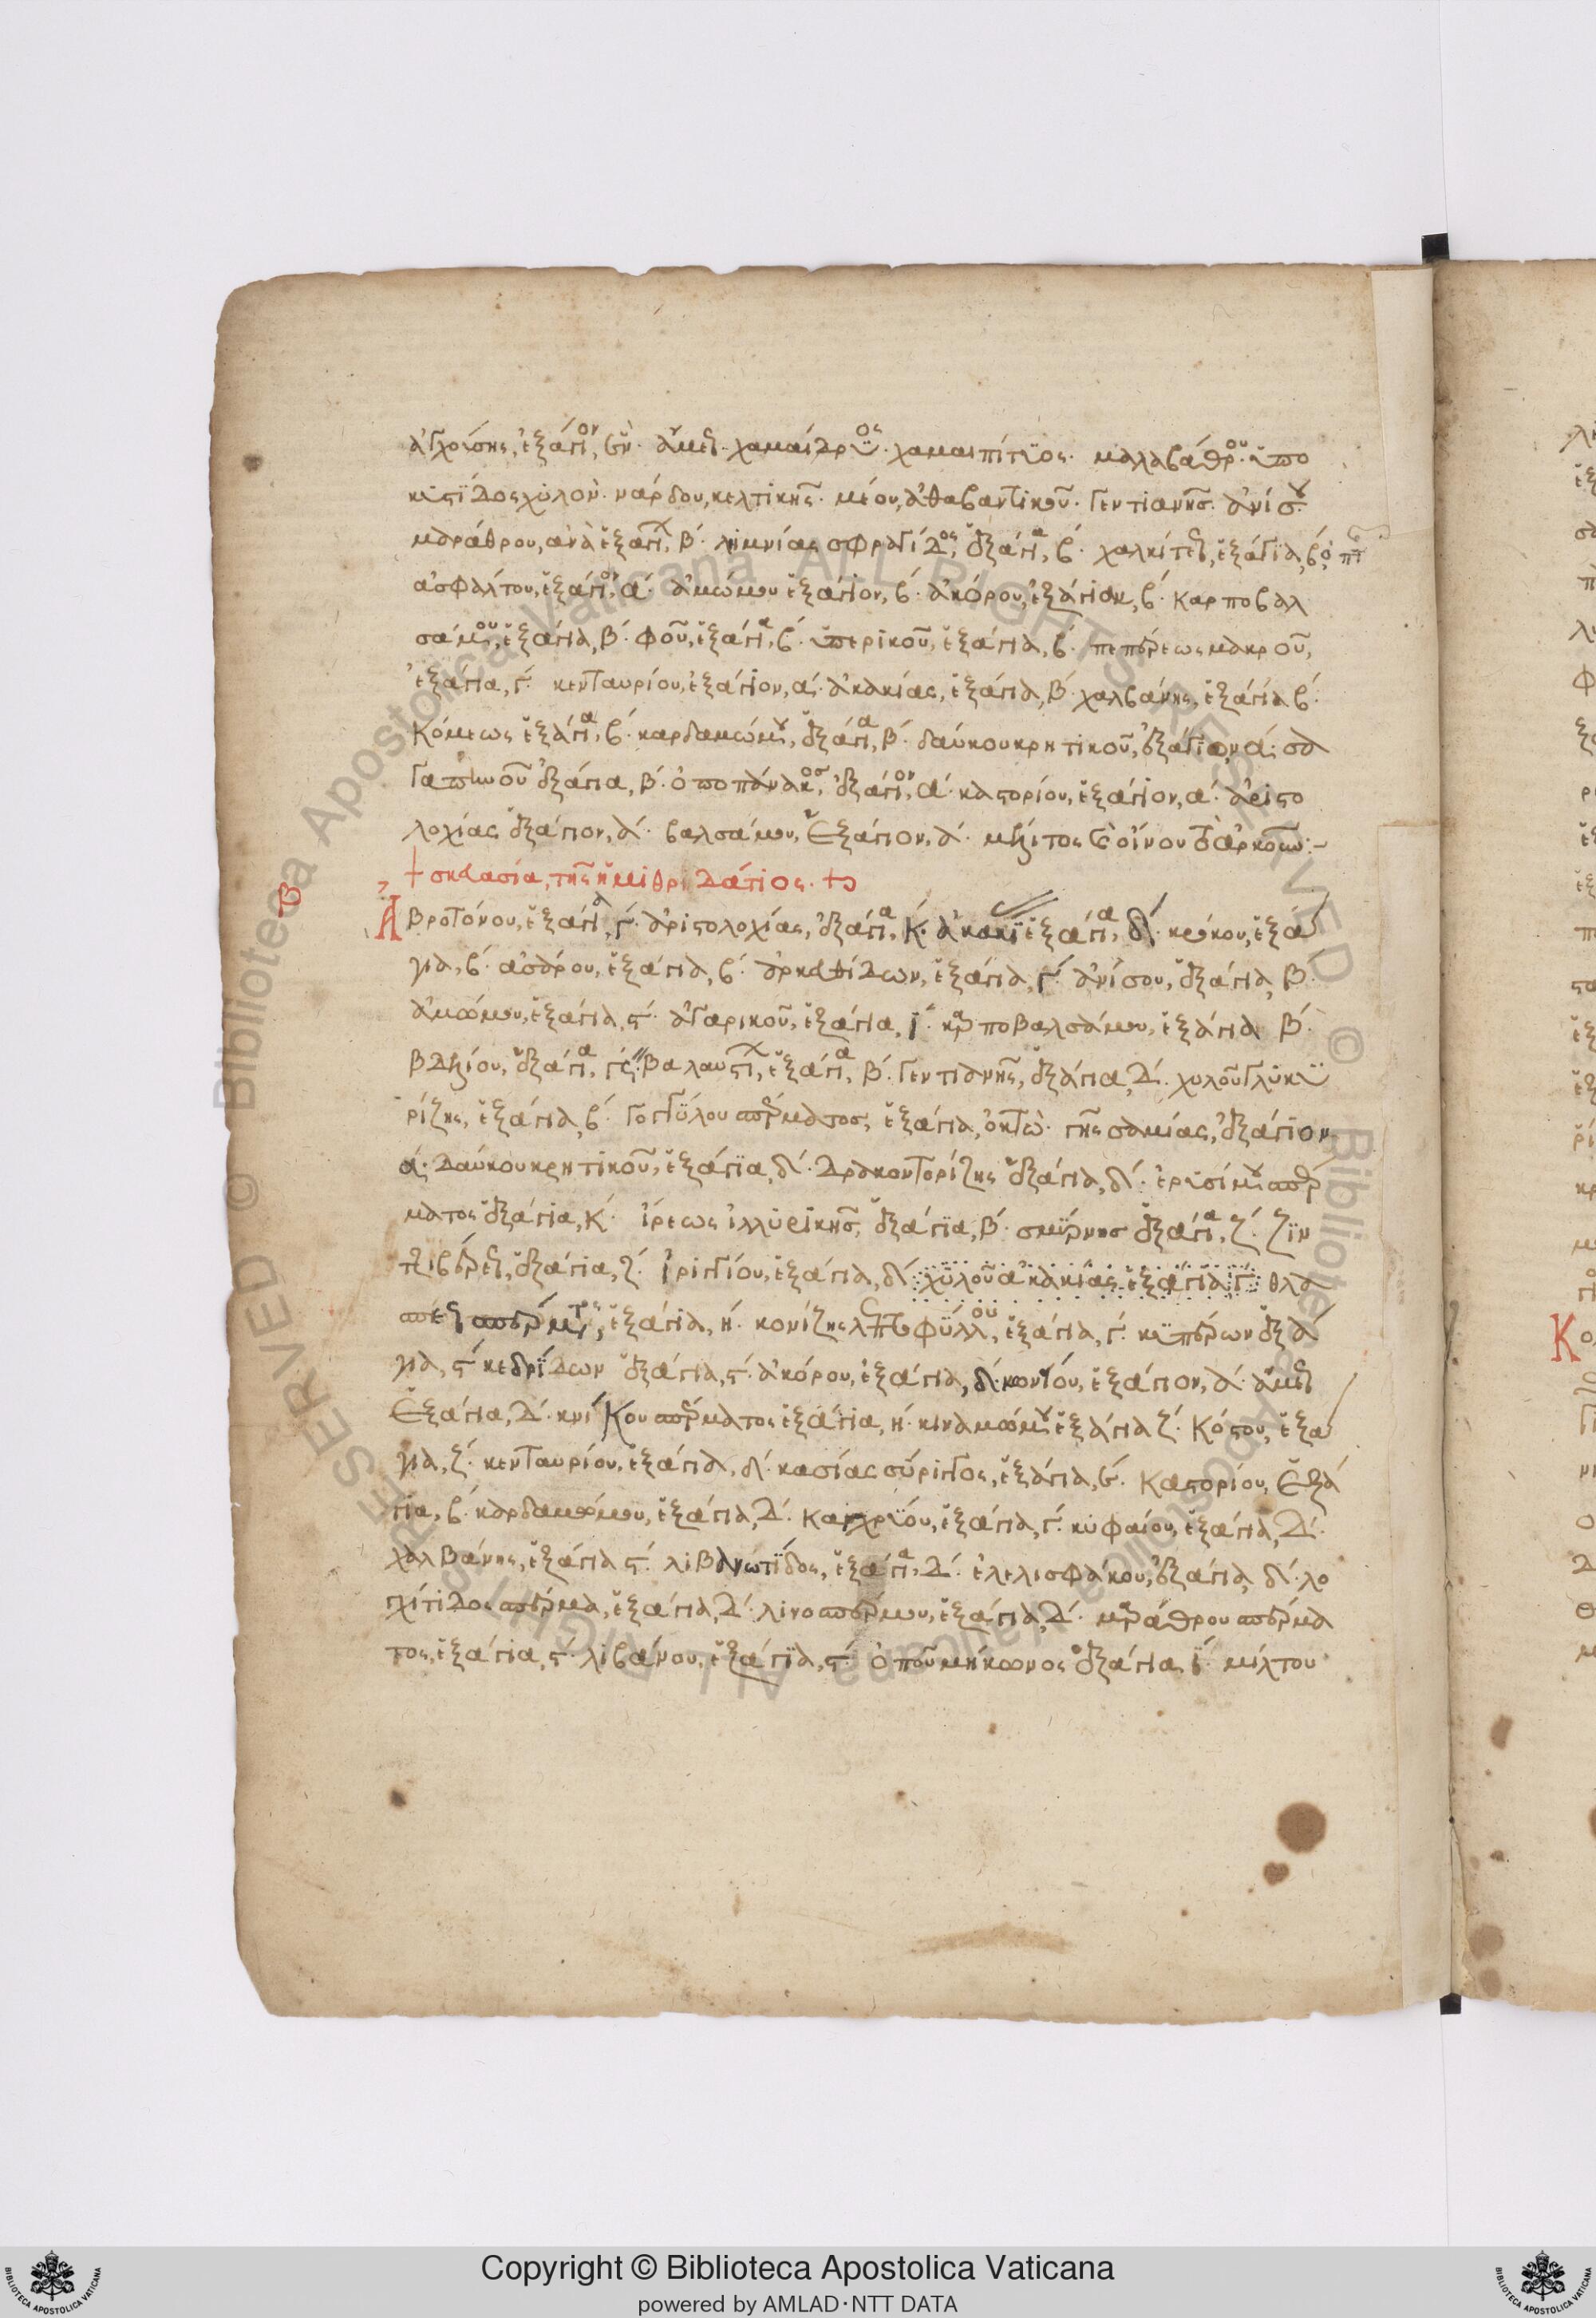 ἀγχούσης, ἐξάγιον, ἓν· ἄμεως· χαμαίδρυος· χαμαιπίτϋος· μαλαβάθρου· ὑπο
κιστίδος χυλὸν· νάρδου, κελτικῆς· μέου, ἀθαβαντικοῦ· γεντιανῆς· ἀνίσου·
μαράθρου, ἀνὰ ἐξάγια, β΄· λιμνίας σφραγίδος, ἐξάγια, β΄· χαλκίτεως, ἐξάγϊα, β΄,
ἀσφάλτου, ἐξάγιον, α΄· ἀμώμου ἐξάγιον, β΄· ἀκόρου, ἐξάγιον, β΄· καρποβαλ
σάμου, ἐξάγια, β΄· φοῦ, ἐξάγια, β΄· ὑπερικοῦ, ἐξάγια, β΄· πεπέρεως μακροῦ,
ἐξάγια, γ΄· κενταυρίου, ἐξάγιον, α΄· ἀκακίας, ἐξάγια, β΄· χαλβάνης, ἐξάγια β΄·
κόμεως ἐξάγια, β΄· καρδαμώμου, ἐξάγια, β΄· δαύκου κρητικοῦ, ἐξάγιον, α΄· σα
γαπηνοῦ ἐξάγια, β΄· ὀποπάνακος, ἐξάγιον, α΄· καστορίου, ἐξάγιον, α΄· ἀριστο
λοχίας ἐξάγιον, α΄· βαλσάμου, ἐξάγιον, α΄· μέλιτος καὶ οἴνου τὸ ἀρκοῦν:-
+ σκευασία, τῆς ἡ μιθριδάτιος· +
β
Ἀβροτόνου, ἐξάγια, γ΄· ἀριστολοχίας, ἐξάγια, κ΄· ἀκακϊ ἐξάγια, δ΄· κρόκου, ἐξά
για, β΄· ἀσάρου, ἐξάγια, β΄· ἀρκευθίδων, ἐξάγια, γ΄· ἀνίσου, ἐξάγια, β΄·
ἀμώμου, ἐξάγια, ς΄· ἀγαρικοῦ, ἐξάγια, ι΄· καρποβαλσάμου, ἐξάγια β΄·
βδελίου, ἐξάγια, βαλαυστι, ἐξάγια, β΄· γεντιανῆς, ἐξάγια, δ΄· χυλοῦ γλυκϋ
ρίζης, ἐξάγια, β΄· γογγϋλου σπέρματος, ἐξάγια, ὀκτὼ· γῆς σαμίας, ἐξάγιον
α΄· δαύκου κρητικοῦ, ἐξάγϊα, δ΄· δρακοντορίζης ἐξάγια, δ΄· ἐρυσίμου σπέρ
ματος ἐξάγια, κ΄· ἴρεως ἰλλυρικῆς, ἐξάγϊα, β΄· σμϋρνης ἐξάγια, ζ΄· ζϊν
γιβέρεως, ἐξάγια, ζ΄· ἠριγγίου, ἐξάγια, δ΄· χϋλοῦ ἀκακίας ἐξάγια γ΄· θλα
σπεως σπέρματος, ἐξάγια, η΄· κονίζης λεπτοφύλλου, ἐξάγια, γ΄· κϋπέρων ἐξά
για, ς΄ κεδρίδων ἐξάγια, ς΄· ἀκόρου, ἐξάγια, δ΄· ἐξάγιον, α΄· ἄμεως
ἐξάγια, δ΄· κνίκου σπέρματος ἐξάγια, η΄· κιναμώμου ἐξάγια ζ΄· κόστου, ἐξά
για, ζ΄· κενταυρίου, ἐξάγια, δ΄· κασίας σύριγγος, ἐξάγια, καστορίου, ἐξά
για, β΄· καρδαμώμου, ἐξάγια, δ΄· καγχρϋόυ, ἐξάγια, γ΄· κυφαίου, ἐξάγια, δ΄·
χαλβάνης, ἐξάγια ς΄· λιβανωτίδος, ἐξάγια, δ΄· ἐλελισφάκου, ἐξάγια, δ΄· λο
γχίτιδος σπέρμα, ἐξάγια, δ΄· λινοσπέρμου, ἐξάγια, δ΄· μαράθρου σπέρμα
τος, ἐξάγια, ς΄· λιβάνου, ἐξάγϊα, ς΄· ὀποῦ μήκωνος ἐξάγια, ι΄· μίλτου
Copyright © Biblioteca Apostolica Vaticana
powered by AMLAD·NTT DATA